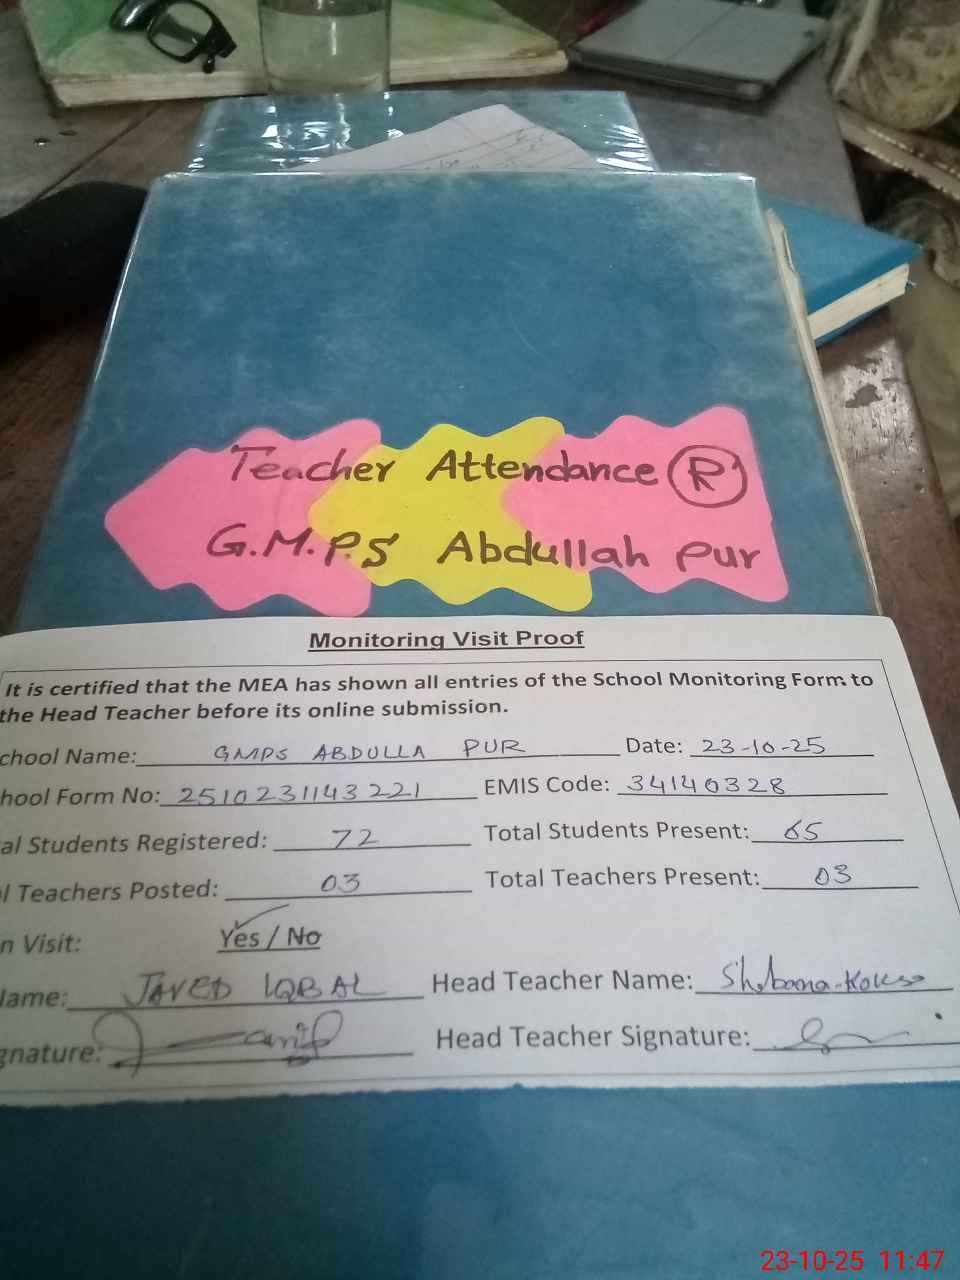 Teacher Attendance R
G.M.P.S Abdullah Pur
Monitoring Visit Proof
It is certified that the MEA has shown all entries of the School Monitoring Form to
the Head Teacher before its online submission.
chool Name: GMPS ABDULLA PUR Date: 23-10-25
hool Form No: 2510231143221 EMIS Code: 34140328
al Students Registered: 72 Total Students Present: 65
l Teachers Posted: 03 Total Teachers Present: 03
n Visit: Yes / No
Name: JAVED IQBAL Head Teacher Name: Shabana
gnature: Head Teacher Signature:
23-10-25 11:47